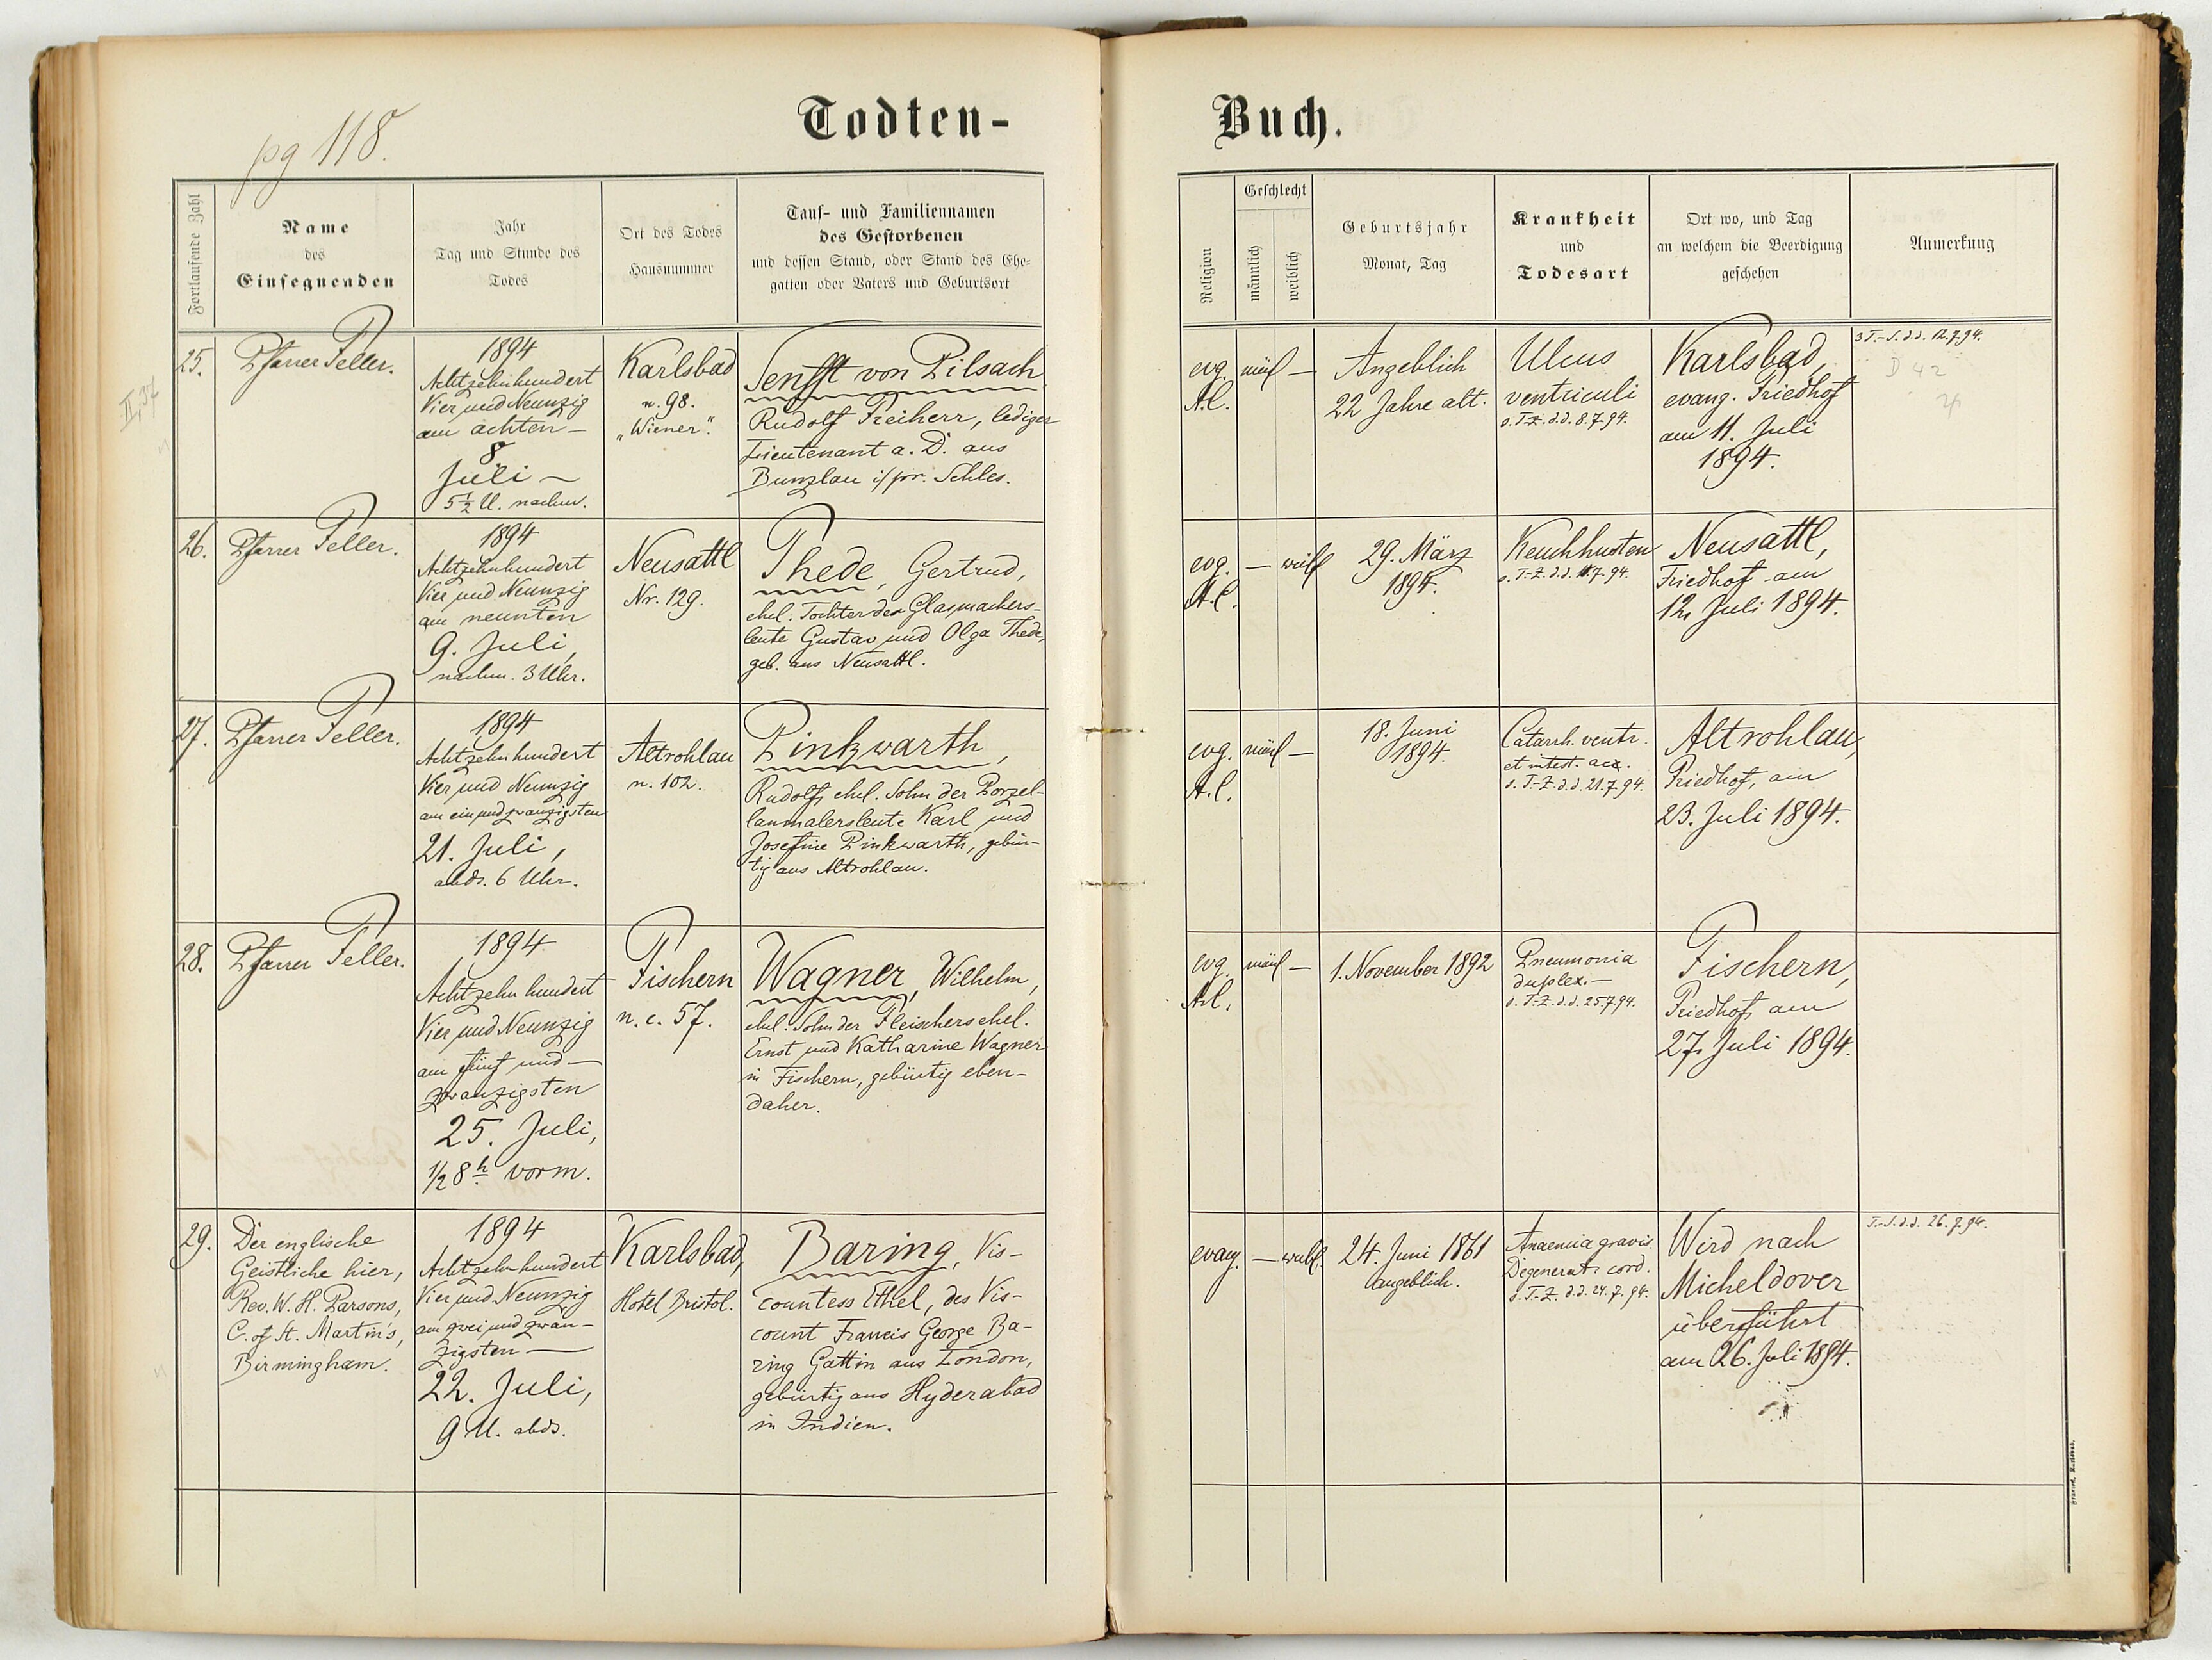 pg 118.
Todten-
Buch.
Fortlaufende Zahl
Name
des
Einsegnenden
Jahr
Tag und Stunde des
Todes
Ort des Todes
Hausnummer
Tauf- und Familiennamen
des Gestorbenen
und dessen Stand, oder Stand des Ehe-
gatten oder Vaters und Geburtsort
Religion
Geschlecht
männlich
weiblich
Geburtsjahr
Monat, Tag
Krankheit
und
Todesart
Ort wo, und Tag
an welchem die Beerdigung
geschehen
Anmerkung
II, 37
25.
Pfarrer Feller.
1894
Achtzehnhundert
Vier und Neunzig
am achten –
8
Juli –
5 1/2 U. nachm.
Karlsbad
n. 98.
„Wiener".
Senfft von Pilsach
Rudolf Freiherr, lediger
Lieutenant a. D. aus
Bunzlau i/pr. Schles.
evg.
A.C.
männl
–
Angeblich
22 Jahre alt.
Ulcus
ventriculi
s. T.-Z. d.d. 8.7.94.
Karlsbad,
evang. Friedhof
am 11. Juli
1894.
3 T.-S. d.d. 12.7.94.
D 42
26.
Pfarrer Feller.
1894
Achtzehnhundert
Vier und Neunzig
am neunten
9. Juli,
nachm. 3 Uhr.
Neusattl
Nr. 129.
Thede, Gertrud,
ehel. Tochter der Glasmachers-
leute Gustav und Olga Thede,
geb. aus Neusattl.
evg.
A.C.
–
weibl
29. März
1894.
Keuchhusten
s. T.-Z. d.d. 11.7.94.
Neusattl,
Friedhof am
12. Juli 1894.
27.
Pfarrer Feller.
1894
Achtzehnhundert
Vier und Neunzig
am einundzwanzigsten
21. Juli,
abds. 6 Uhr.
Altrohlau
n. 102.
Pinkwarth,
Rudolf, ehel. Sohn der Porzel-
lanmalersleute Karl und
Josefine Pinkwarth, gebür-
tig aus Altrohlau.
evg.
A.C.
männl
–
18. Juni
1894.
Catarrh. ventr.
et intest. ac.
s. T.-Z. d.d. 21.7.94.
Altrohlau,
Friedhof, am
23. Juli 1894.
28.
Pfarrer Feller.
1894
Achtzehn hundert
Vier und Neunzig
am fünf und –
zwanzigsten
25. Juli,
1/2 8 h vorm.
Fischern
n. c. 57.
Wagner, Wilhelm,
ehel. Sohn der Fleischersehel.
Ernst und Katharine Wagner
in Fischern, gebürtig eben-
daher.
evg.
A.C.
männl
–
1. November 1892
Pneumonia
duplex. –
s. T.-Z. d.d. 25.7.94.
Fischern,
Friedhof, am
27. Juli 1894.
29.
Der englische
Geistliche hier,
Rev. W. H. Parsons,
C. of St. Martin's,
Birmingham.
1894
Achtzehnhundert
Vier und Neunzig
am zwei und zwan-
zigsten –
22. Juli,
9 U. abds.
Karlsbad,
Hotel Bristol.
Baring, Vis-
countess Ethel, des Vis-
count Francis George Ba-
ring Gattin aus London,
gebürtig aus Hyderabad
in Indien.
evang.
–
weibl.
24. Juni 1861
angeblich.
Anaemia gravis
Degenerat. cord.
s. T.-Z. d.d. 24.7.94.
Wird nach
Micheldover
überführt
am 26. Juli 1894.
T.-S. d.d. 26.7.94.